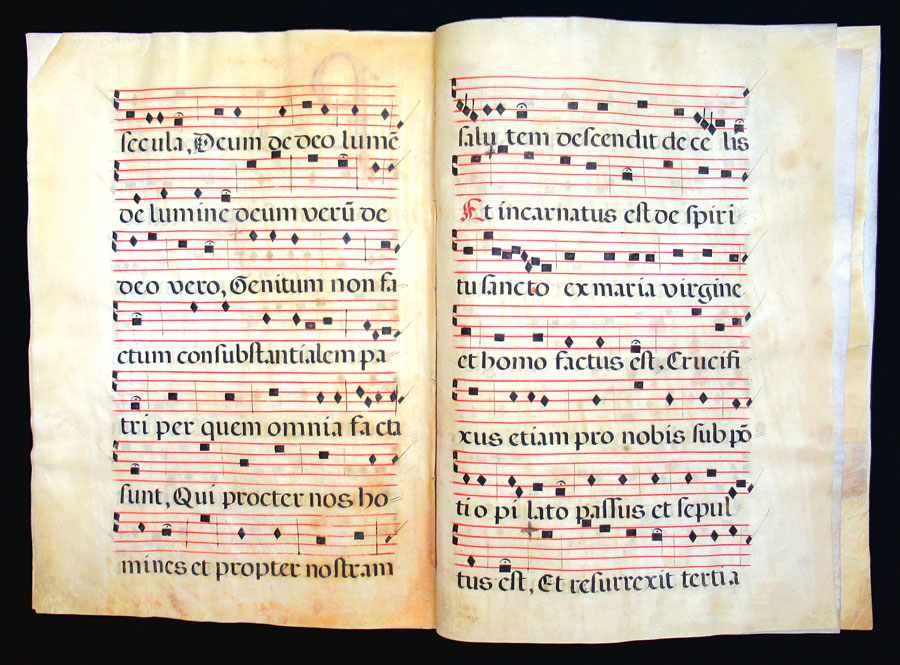 secula, Deum de deo lumē
de lumine deum verū de
deo vero, Genitum non fa
ctum consubstantialem pa
tri per quem omnia facta
sunt, Qui procter nos ho
mines et propter nostram
salu tem descendit de ce lis
Et incarnatus est de spiri
tu sancto ex maria virgine
et homo factus est. Crucifi
xus etiam pro nobis sub pō
ti o pi lato passus et sepul
tus est, Et resurrexit tertia